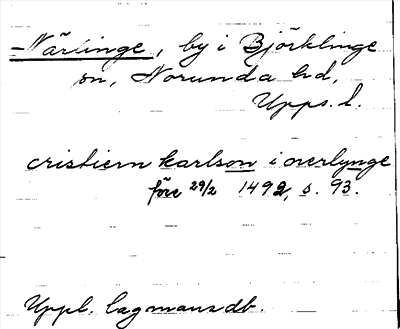 -Närlinge, by i Björklinge
sn, Norunda hd,
Upps. l.
cristiern karlson i overlynge
före 29/2 1492, s. 93.
Uppl. lagmansdb.